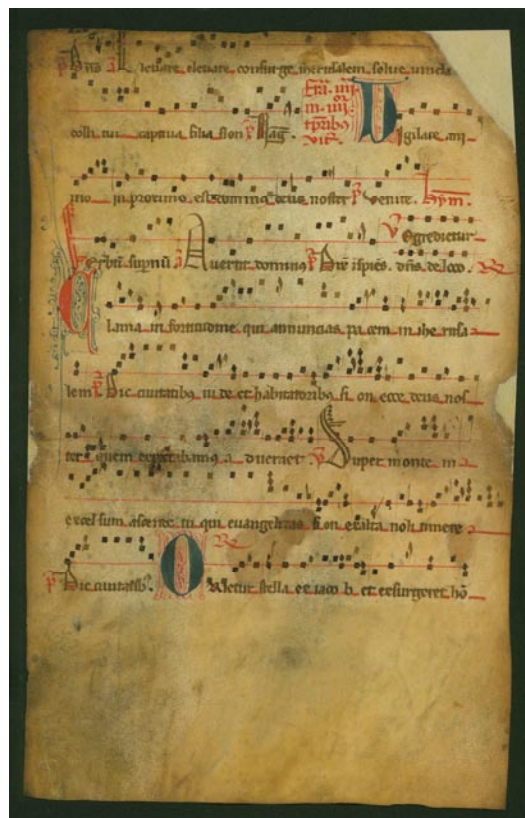 leuare eleuare consurge iherusalem solue uincla
colli tui captiua filia sion
Vigilate ani
mo in proximo est dominus deus noster Venite. Hym.
Egredietur
Verbū supnū Auertit dominus
de loco.
Clama in fortitudine qui annuncias pacem in iherusa
lem Dic ciuitatibus iude et habitatoribus sion ecce deus nos
ter quem expectabamus adueniet Super montem
excelsum ascende tu qui euangelizas sion exalta noli timere
Dic ciuitatib. Orietur stella ex iacob et exsurget hō